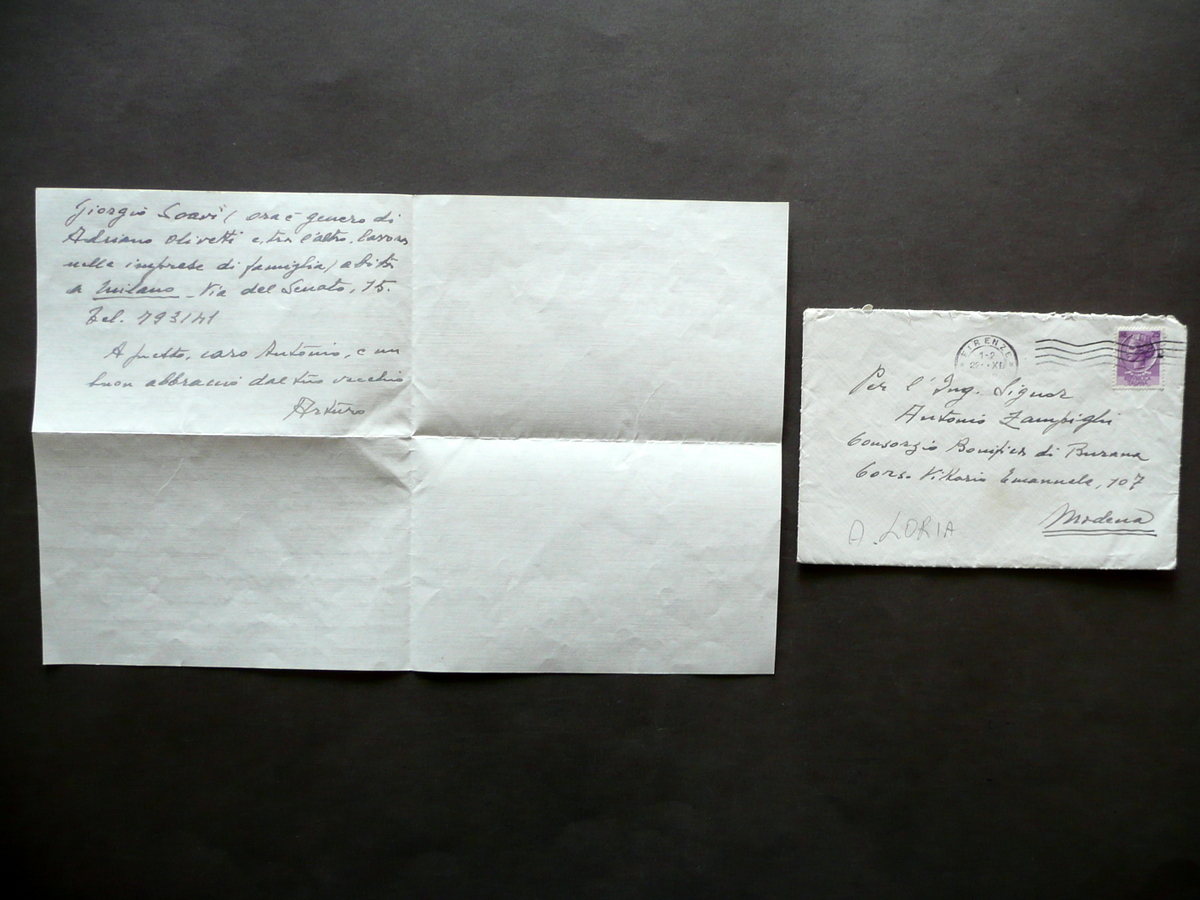 Giorgio Soavi (ora è genero di
Adriano Olivetti e, tra l'altro, lavora
nelle imprese di famiglia) abita
a Milano - Via del Senato, 15.
Tel. 793141
A presto, caro Antonio, e un
buon abbraccio dal tuo vecchio
Arturo
FIRENZE
1-2
XI
25
Per l'Ing. Signor
Antonio Zampighi
Consorzio Bonifica di Burana
Corso Vittorio Emanuele, 107
Modena
A. LORIA